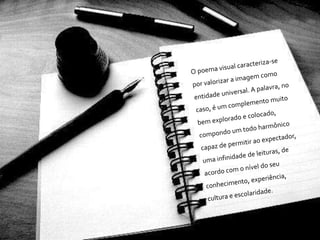 O poema visual caracteriza-se
por valorizar a imagem como
entidade universal. A palavra, no
caso, é um complemento muito
bem explorado e colocado,
compondo um todo harmônico
capaz de permitir ao expectador,
uma infinidade de leituras, de
acordo com o nível do seu
conhecimento, experiência,
cultura e escolaridade.